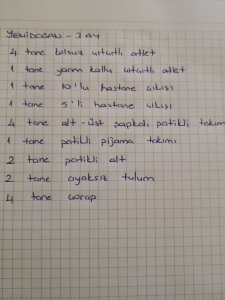 YENİDOĞAN - 3 AY
4 tane kolsuz çıtçıtlı atlet
1 tane yarım kollu çıtçıtlı atlet
1 tane 10'lu hastane çıkışı
1 tane 5'li hastane çıkışı
4 tane alt-üst şapkalı patikli takım
1 tane patikli pijama takımı
2 tane patikli alt
2 tane ayaksız tulum
4 tane çorap